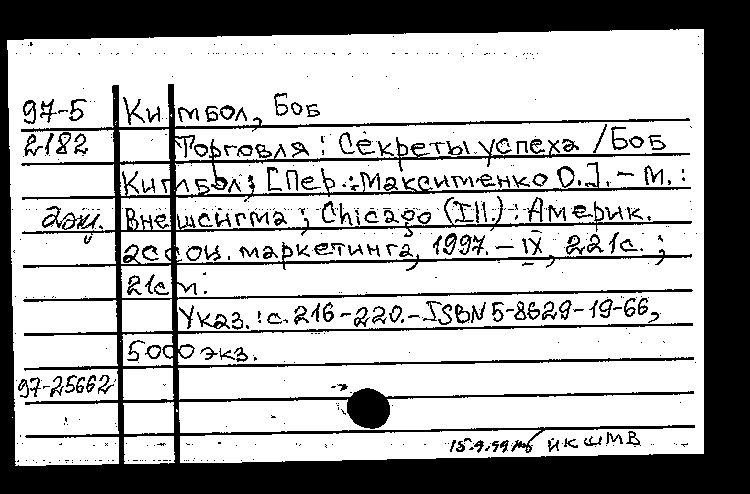 97-5 Кимбол, Боб
2182 Торговля : Секреты успеха / Боб
Кимбол; [Пер.: Максименко О.]. - М. :
Внешсигма ; Chicago (Ill.) : Америк.
ассоц. маркетинга, 1997. - IX, 221с. ;
21см.
Указ.: с.216-220. - ISBN 5-8629-19-66,
5000 экз.
97-25662
йкшмв